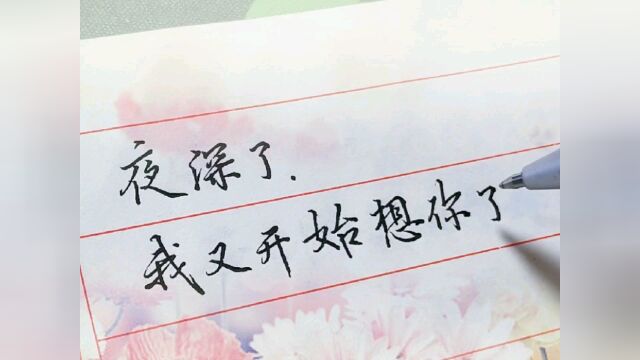 夜深了.
我又开始想你了